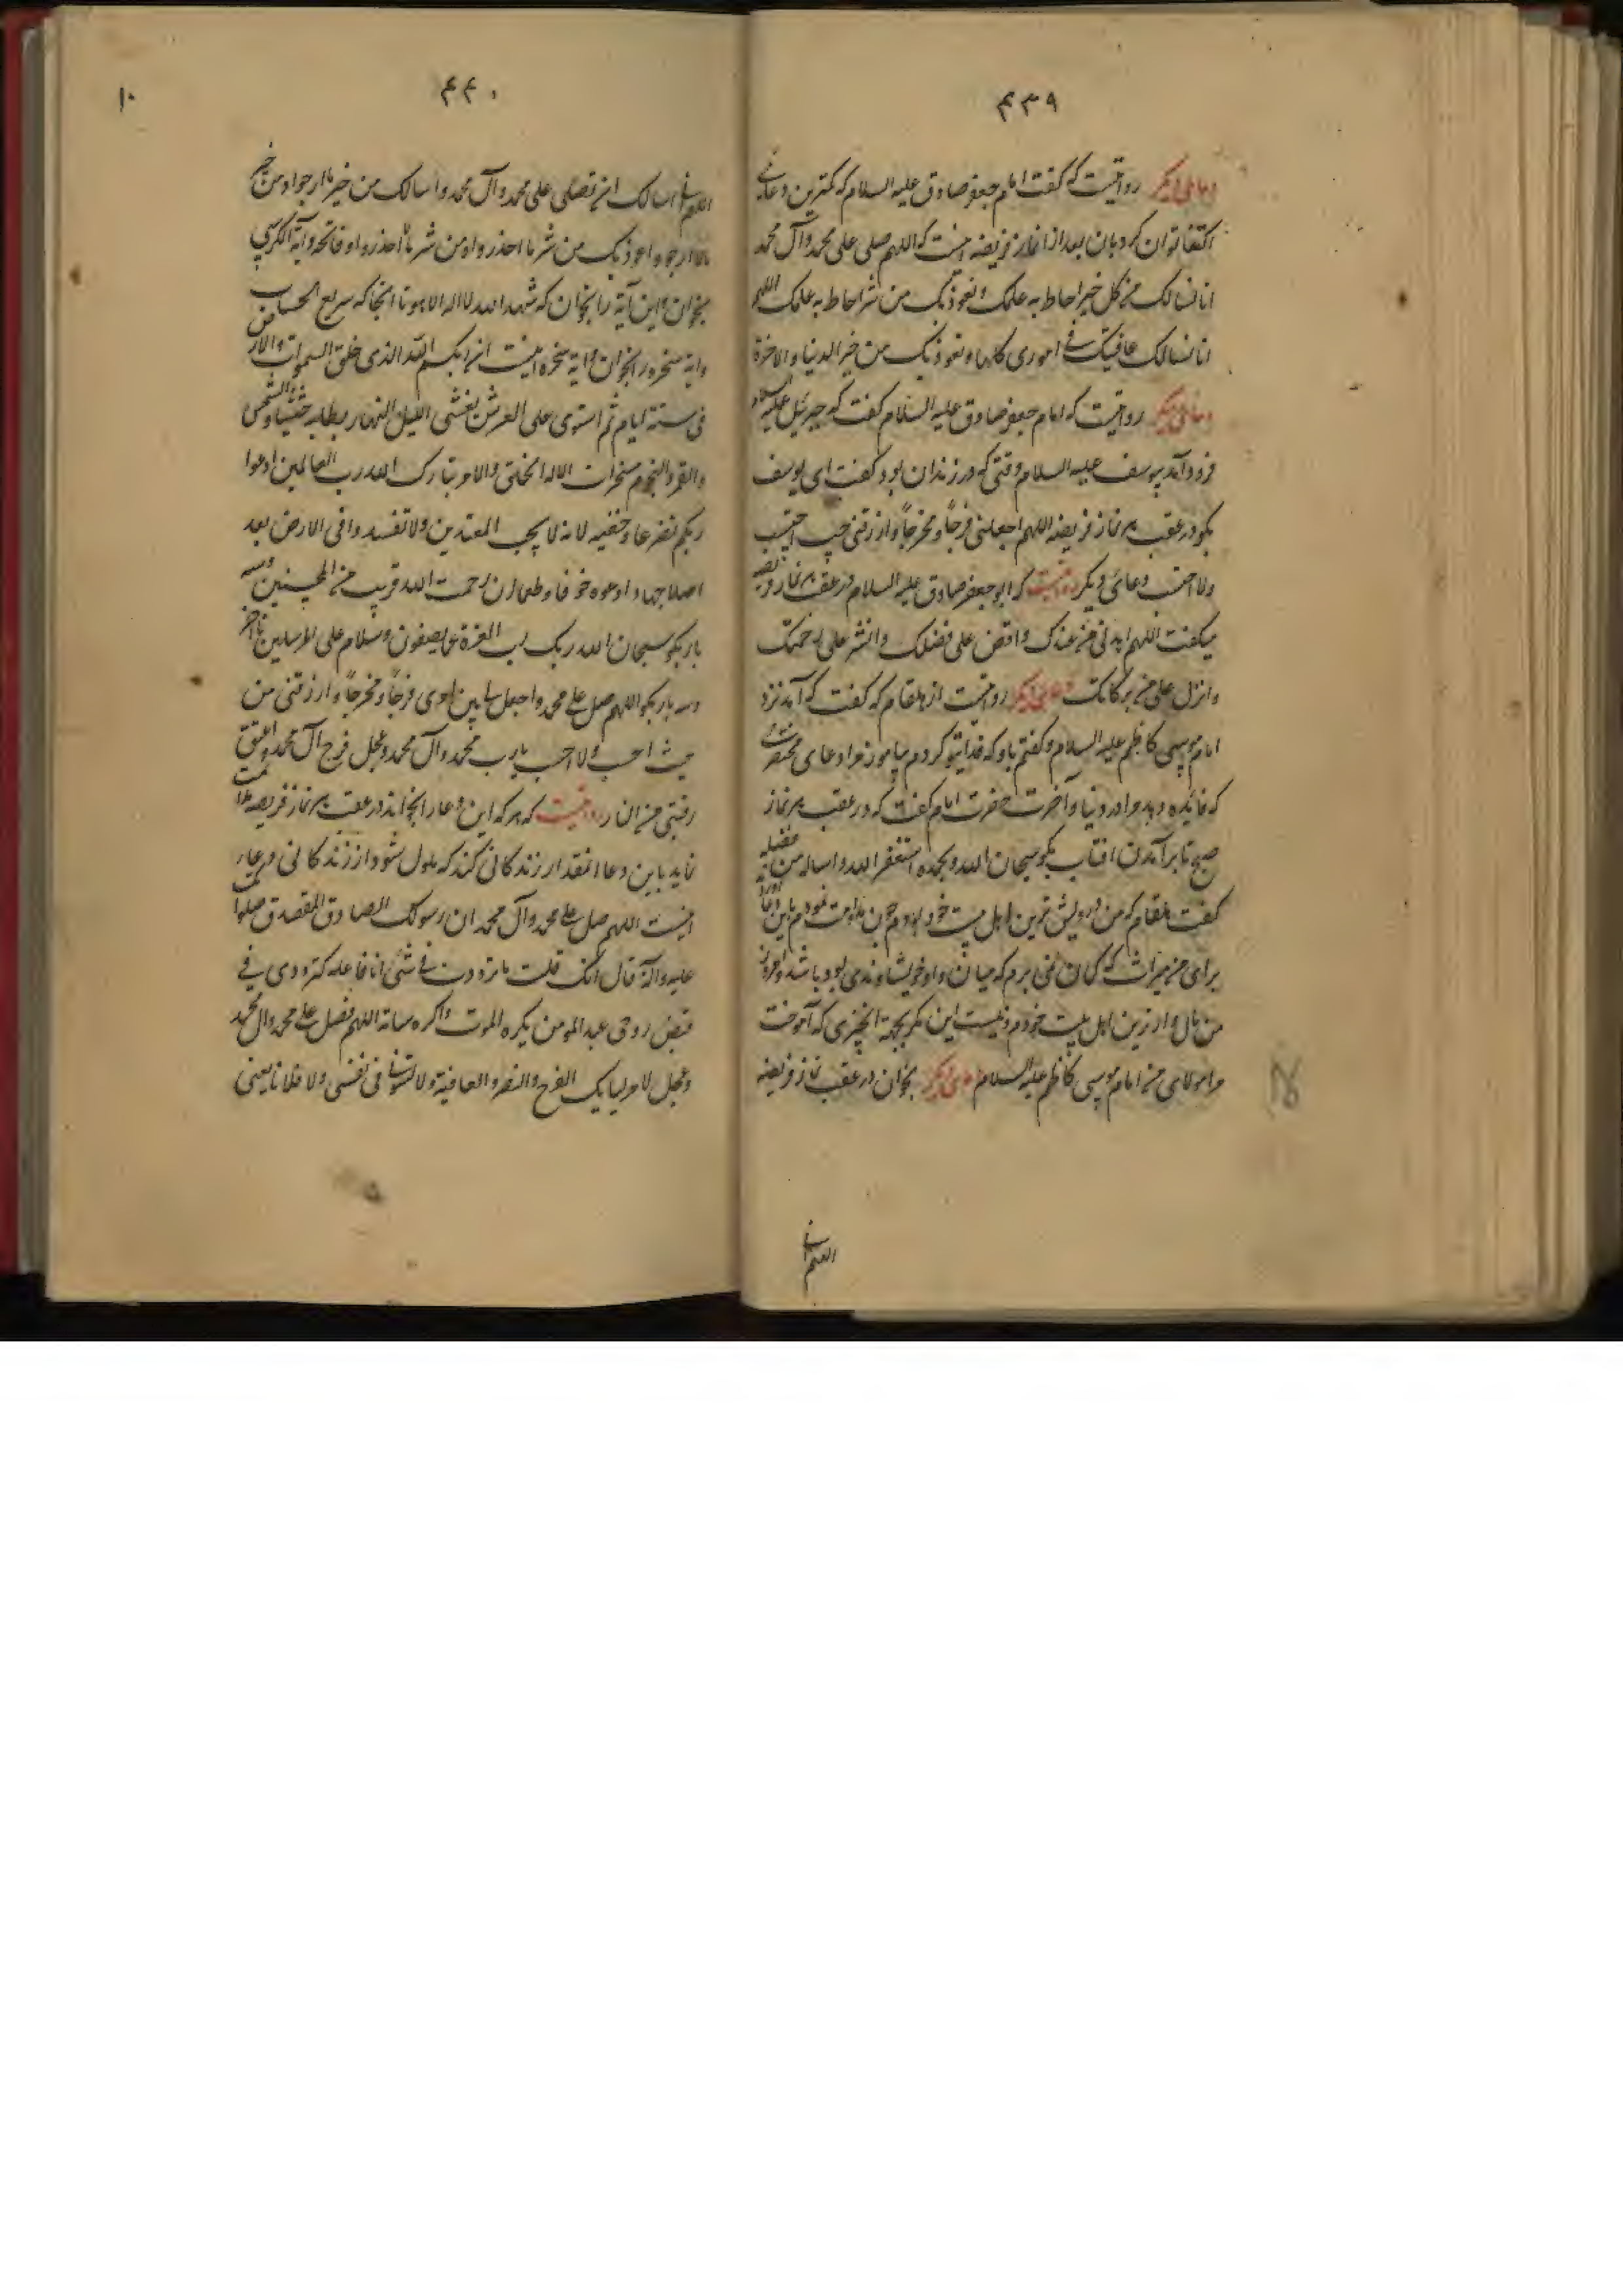 ۴۳۹
دعای دیگر روایتست که گفت امام جعفر صادق علیه السلام که کمترین دعائی
اکتفا توان کرد بان بعد از نماز فریضه اینست که اللهم صلی علی محمد وآل محمد
انا نسالک من کل خیر احاط به علمک و نعوذ بک من شر احاط به علمک اللهم
انا نسالک عافیتک فی اموری کلها و نعوذ بک من خیر الدنیا والاخرة
دعای دیگر روایتست که امام جعفر صادق علیه السلام گفت که جبرئیل علیه السلام
فرود آمد بیوسف علیه السلام وقتی که در زندان بود گفت ای یوسف
بگو در عقب هر نماز فریضه اللهم اجعلنی فرجاً و مخرجاً وارزقنی من حیث احتسب
ولا احتسب دعائی دیگر روایتست که ابو جعفر صادق علیه السلام در عقب هر نماز فریضه
میگفت اللهم اهدنی من عندک وافض علی فضلک وانشر علی رحمتک
وانزل علی من برکاتک دعای دیگر روایتست از هلقام که گفت که آمد نزد
امام موسی کاظم علیه السلام و گفتم باو که فدای تو گردم بیاموز مرا دعای مختصری
که فائده دهد مرا در دنیا و آخرت حضرت امام گفت که در عقب هر نماز
صبح تا برآمدن افتاب بگو سبحان الله وبحمده استغفر الله واساله من فضله
گفت هلقام که من درویش ترین اهل بیت خود بودم چون مداومت نمودم باین دعا
برای من میراث که گمان نمی بردم که میان من و او خویشاوندی بود باشد و امروز
من مال دار ترین اهل بیت خودم و نیست این مگر بجهة انچیزی که آموخت
مرا مولای من امام موسی کاظم علیه السلام دعای دیگر بخوان در عقب نماز فریضه
اللهم انی
۴۴۰
۱۰
اللهم انی اسالک ان تصلی علی محمد وآل محمد واسالک من خیر ما ارجو ومن خیر
ما لا ارجو واعوذ بک من شر ما احذر واو من شر ما لا احذر و او فاتحه و آیة الکرسی
بخوان و این آیة را بخوان که شهد الله لا اله الا هو تا انجا که سریع الحساب
وایة سخره را بخوان و ایة سخره اینست ان ربکم الله الذی خلق السموات والارض
فی ستة ایام ثم استوی علی العرش یغشی اللیل النهار یطلبه حثیثا والشمس
والقمر والنجوم مسخرات الا له الخلق والامر تبارک الله رب العالمین ادعوا
ربکم تضرعا وخفیه لانه لا یحب المعتدین ولا تفسدوا فی الارض بعد
اصلاحها وادعوه خوفا وطمعا ان رحمت الله قریب من المحسنین و سه
بار بگو سبحان الله ربک رب العزة عما یصفون وسلام علی المرسلین تا آخر
و سه بار بگو اللهم صل علی محمد واجعل لی من امری فرجاً ومخرجاً وارزقنی من
حیث احتسب ولا احتسب یا رب محمد وآل محمد وعجل فرج آل محمد واعتق
رقبتی من النار روایتست که هر که این دعا را بخواند در عقب هر نماز فریضه
نماید باین دعا انقدر زندگانی کند که ملول شود از زندگانی و دعا
اینست اللهم صل علی محمد وآل محمد ان رسولک الصادق المصدق صلواتک
علیه وآله قال انک قلت ما ترددت فی شئی انا فاعله کترددی فی
قبض روحی عبد المومن یکره الموت واکره مساته اللهم فصل علی محمد وال محمد
وعجل لاولیایک الفرج والنصر والعافیة ولا تسوءنی فی نفسی ولا فلانا یعنی